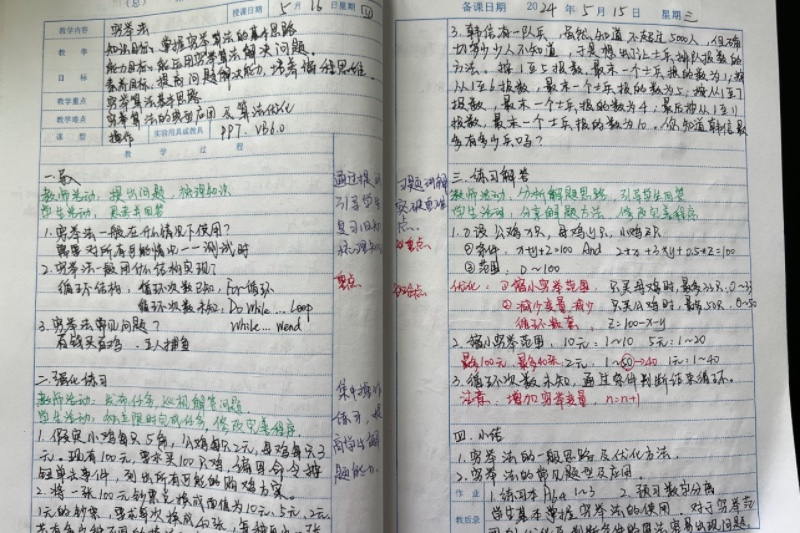 授课日期 5月16日星期四
教学内容 穷举法
教学目标 知识目标、掌握穷举算法的基本思路
能力目标、能应用穷举算法解决问题。
素养目标、提高问题解决能力,培养编程思维。
教学重点 穷举算法基本思路
教学难点 穷举算法的典型应用及算法优化
课型 操作 实验用具或教具 PPT、VB6.0
教学过程
教师活动:提出问题,梳理知识
学生活动:思考并回答
1.穷举法一般在什么情况下使用?
需要对所有可能情况一一测试时
2.穷举法一般用什么结构实现?
循环结构:循环次数已知,For循环
循环次数未知,Do While...Loop
While...Wend
3.穷举法常见问题?
百钱买百鸡、五人捕鱼
重点、
二.强化练习
教师活动:发布任务,巡视解答问题
学生活动:独立限时完成任务,修改完善程序
1.假定小鸡每只5角,公鸡每只2元,母鸡每只3
元。现有100元,要求买100只鸡,编写命令按
钮单击事件,列出所有可能的购鸡方案。
2.将一张100元钞票兑换成面值为10元、5元、2元、
1元的钞票,要求每次换成40张,每种至少一张
备课日期 2024年5月15日 星期三
3.韩信有一队兵,
的方法。按1至5报数,最末一个士兵报的数为1;按
从1至6报数,最末一个士兵报的数为5;按从1至7
报数,最末一个士兵报的数为4;最后按从1至11
报数,最末一个士兵报的数为10。你知道韩信最
少有多少兵吗?
三.练习解答
教师活动:分析解题思路,引导学生回答
学生活动:分享解题方法,修改完善程序
1.①设公鸡x只,母鸡y只,小鸡z只
②条件:x+y+z=100 And 2*x+3*y+0.5*z=100
③范围:0~100
优化:①缩小穷举范围 只买母鸡时,最多33只,0~33
②减少变量,减少 只买公鸡时,最多50只,0~50
循环次数 z=100-x-y
2.缩小穷举范围,10元:1~10 5元:1~20
最多100元,最多40张,2元:1~50→40 1元:1~40
3.循环次数未知,通过条件判断结束循环。
注意:增加穷举变量,n=n+1
四.小结
1.穷举法的一般思路及优化方法。
2.穷举法的常见题型及应用。
作业 1.练习本 P64 1~3 2.预习数字分离
教后录 学生基本掌握穷举法的使用。对于穷举范